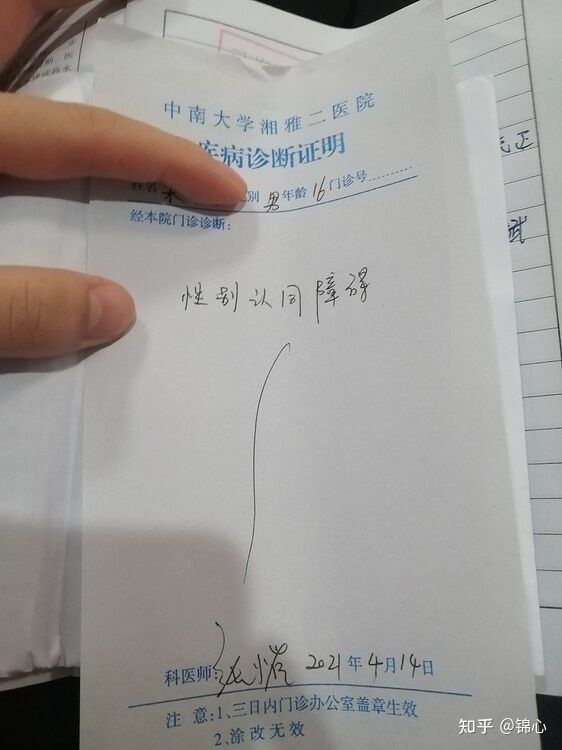 中南大学湘雅二医院
疾病诊断证明
姓名 别 男 年龄 16 门诊号
经本院门诊诊断:
性别认同障碍
科医师: 2021年4月14日
注 意:1、三日内门诊办公室盖章生效
2、涂改无效
知乎 @锦心